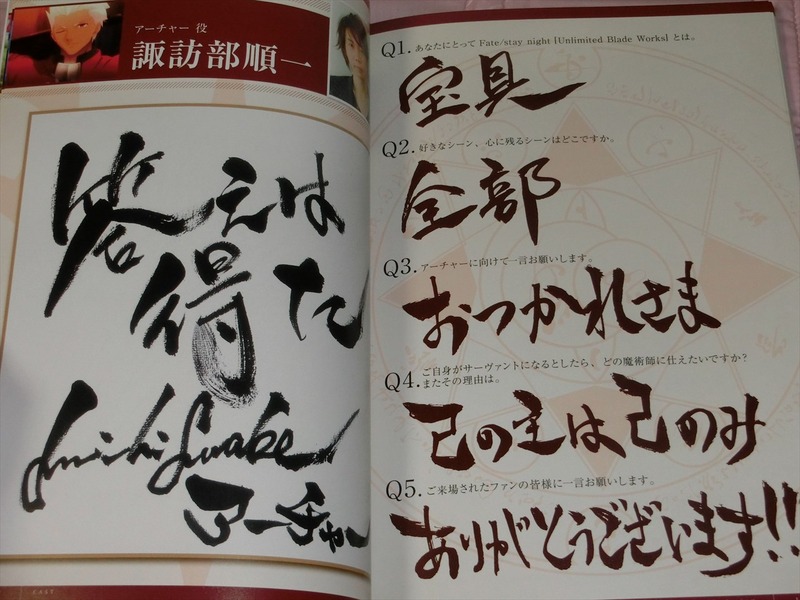 アーチャー 役
諏訪部順一
答えは
得た
Junichi Suwabe
アーチャー
CAST
Q1.あなたにとって Fate/stay night [Unlimited Blade Works] とは。
宝具
Q2.好きなシーン、心に残るシーンはどこですか。
全部
Q3.アーチャーに向けて一言お願いします。
おつかれさま
Q4.ご自身がサーヴァントになるとしたら、どの魔術師に仕えたいですか?
またその理由は。
己の主は己のみ
Q5.ご来場されたファンの皆様に一言お願いします。
ありがとうございます!!